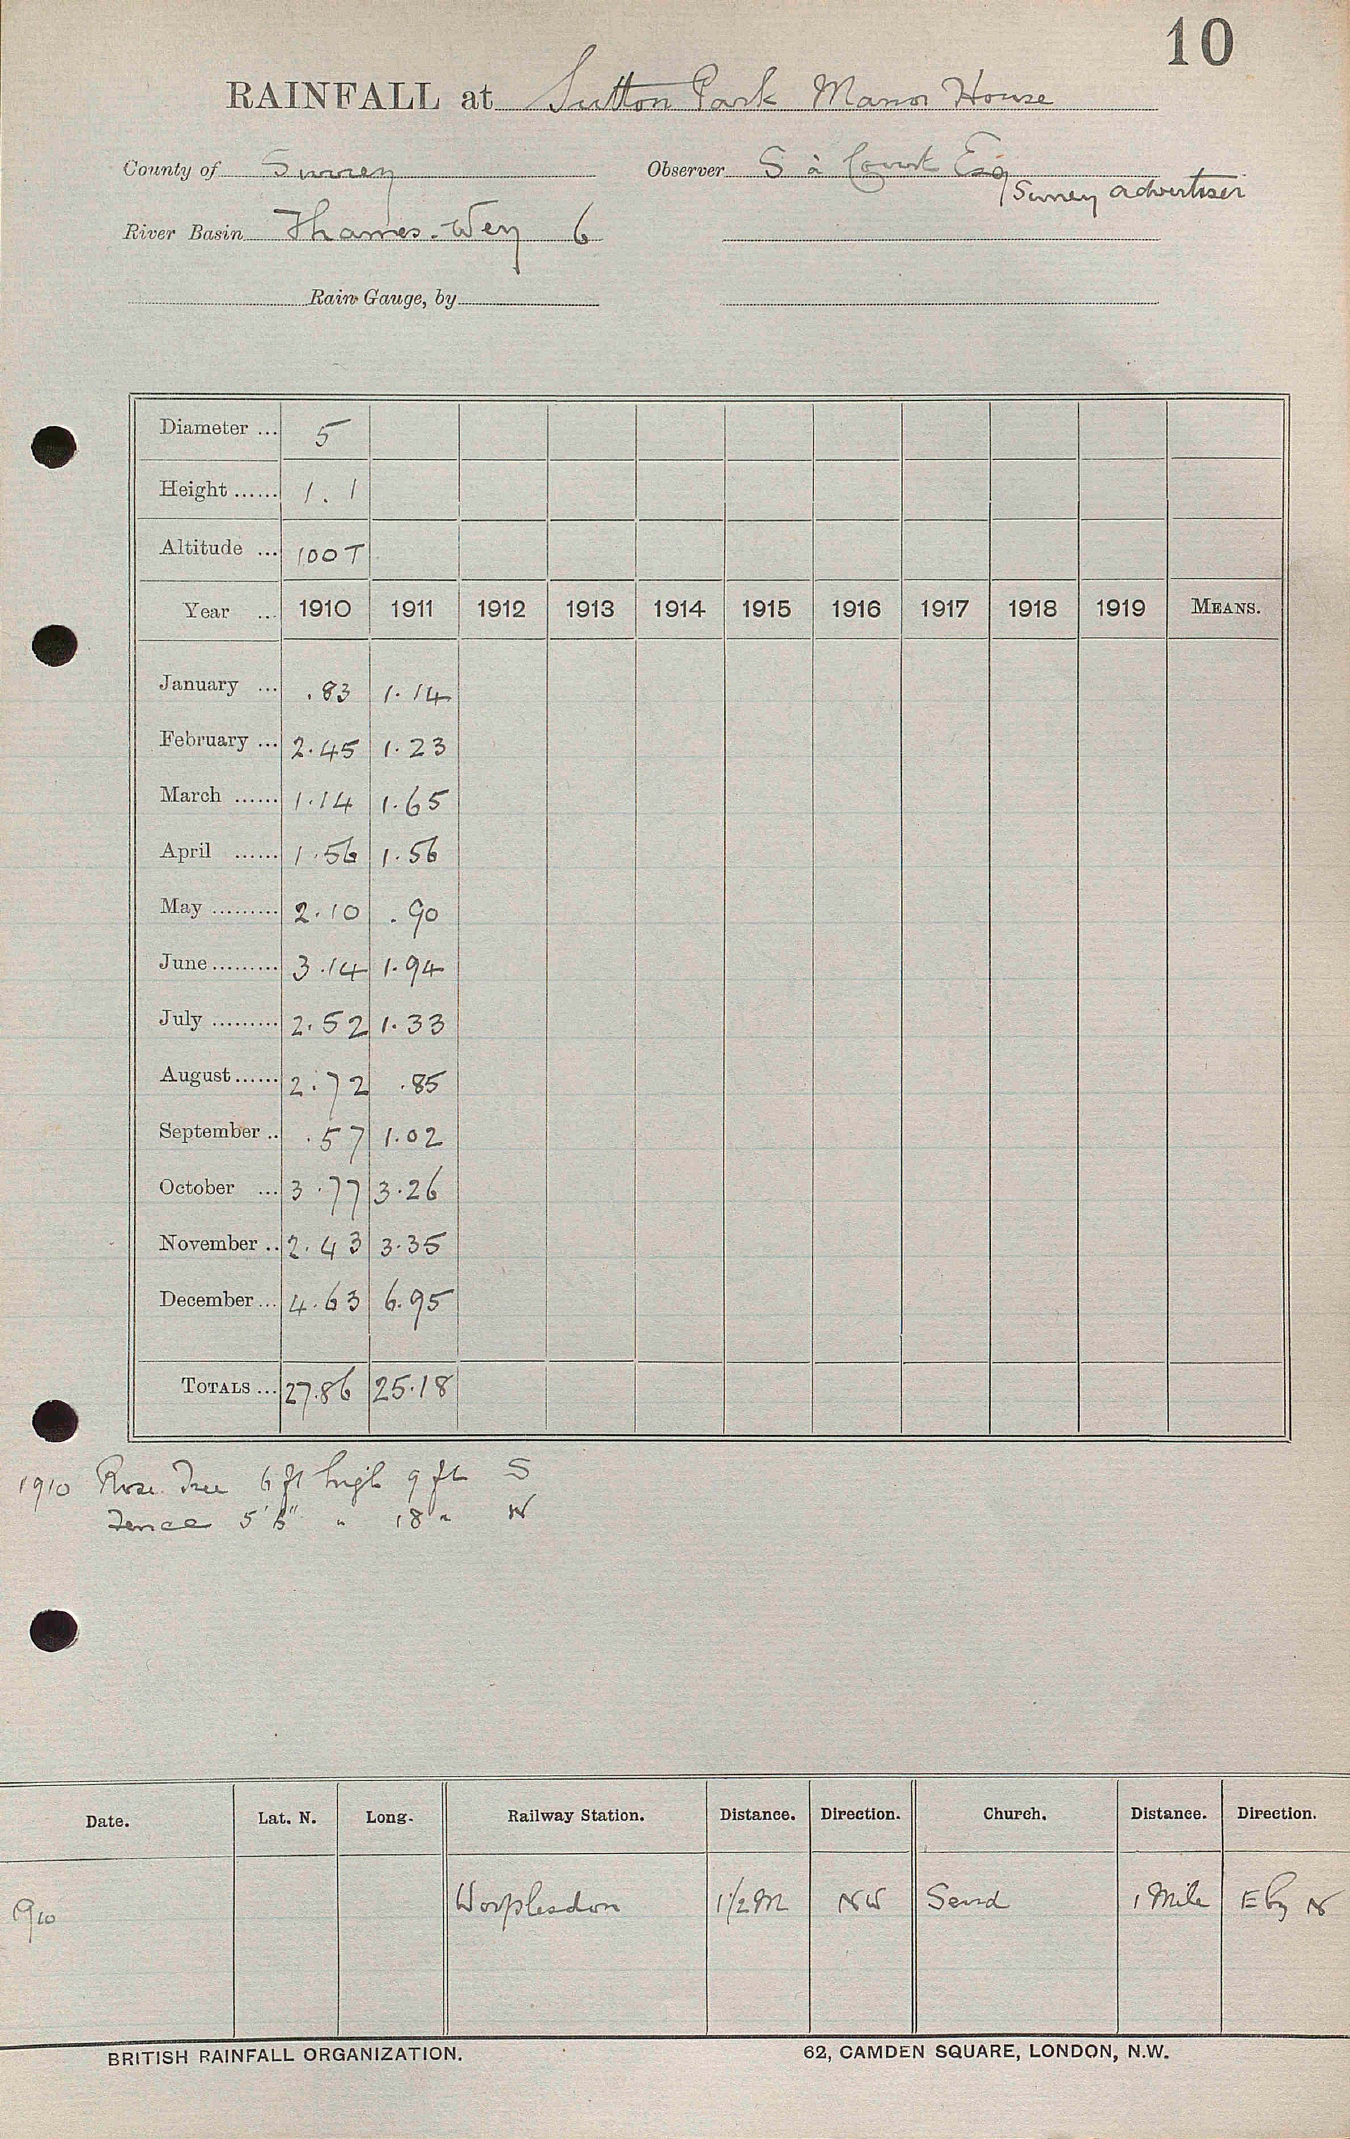 10
RAINFALL at Sutton Park Manor House
County of Surrey Observer S à Court Esq
Surrey Advertiser
River Basin Thames-Wey 6
Rain Gauge, by
Diameter ... 5
Height ...... 1.1
Altitude ... 100 T
Year ... 1910 1911 1912 1913 1914 1915 1916 1917 1918 1919 MEANS.
January ... .83 1.14
February ... 2.45 1.23
March ...... 1.14 1.65
April ...... 1.56 1.56
May ......... 2.10 .90
June ......... 3.14 1.94
July ......... 2.52 1.33
August ...... 2.72 .85
September .. .57 1.02
October ... 3.77 3.26
November .. 2.43 3.35
December ... 4.63 6.95
TOTALS ... 27.86 25.18
1910 Rose Tree 6 ft high 9 ft S
Fence 5' 6" " 18 " N
Date. Lat. N. Long. Railway Station. Distance. Direction. Church. Distance. Direction.
1910 Worplesdon 1 1/2 M NW Send 1 Mile E by N
BRITISH RAINFALL ORGANIZATION. 62, CAMDEN SQUARE, LONDON, N.W.